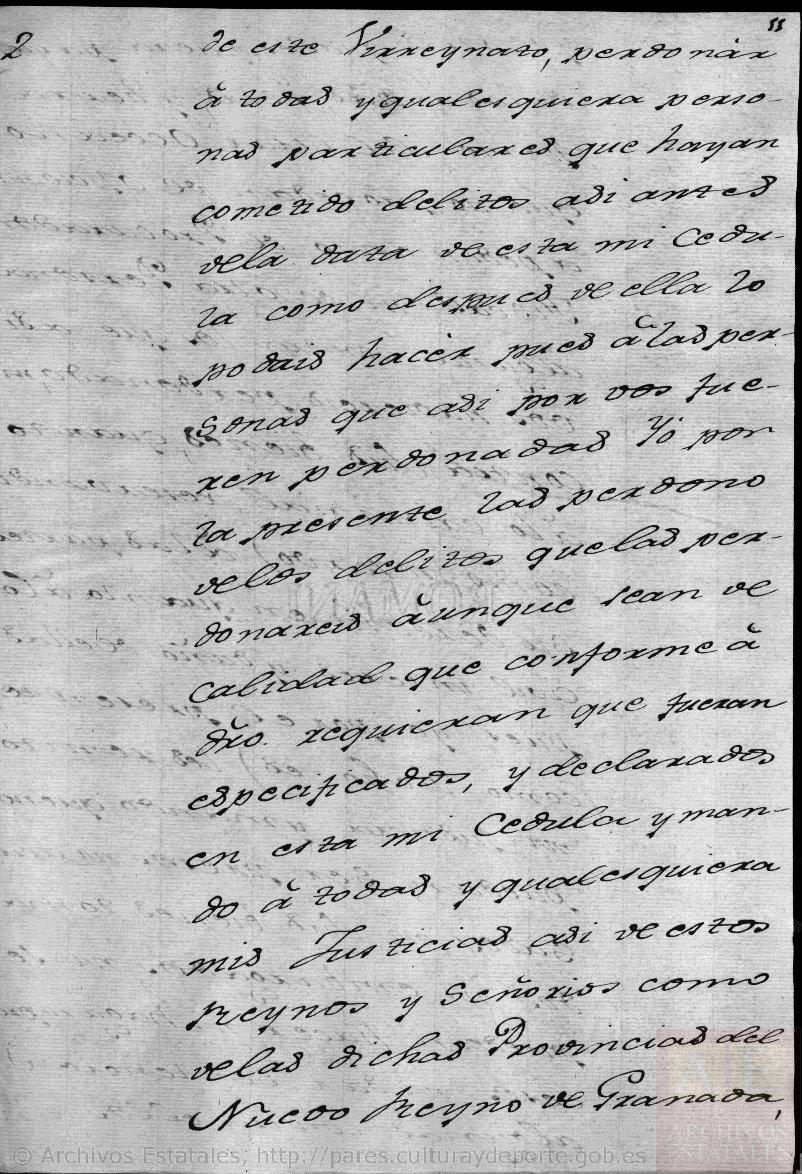 2
55
de este Virreynato, perdonàr
â todas y qualesquiera perso-
nas particulares que hayan
cometido delitos asi antes
dela data de esta mi Cedu-
la como despues de ella lo
podais hacèr pues â las per-
sonas que asi por vos fue-
ren perdonadas Yò por
la presente las perdono
delos delitos que las per-
donareis âunque sean de
calidad que conforme â
dro. requieran que fueran
especificados, y declarados
en esta mi Cedula y man-
do â todas y qualesquiera
mis Justicias asi de estos
Reynos y Señorios como
delas dichas Provincias del
Nuevo Reyno de Granada,
© Archivos Estatales, http://pares.culturaydeporte.gob.es